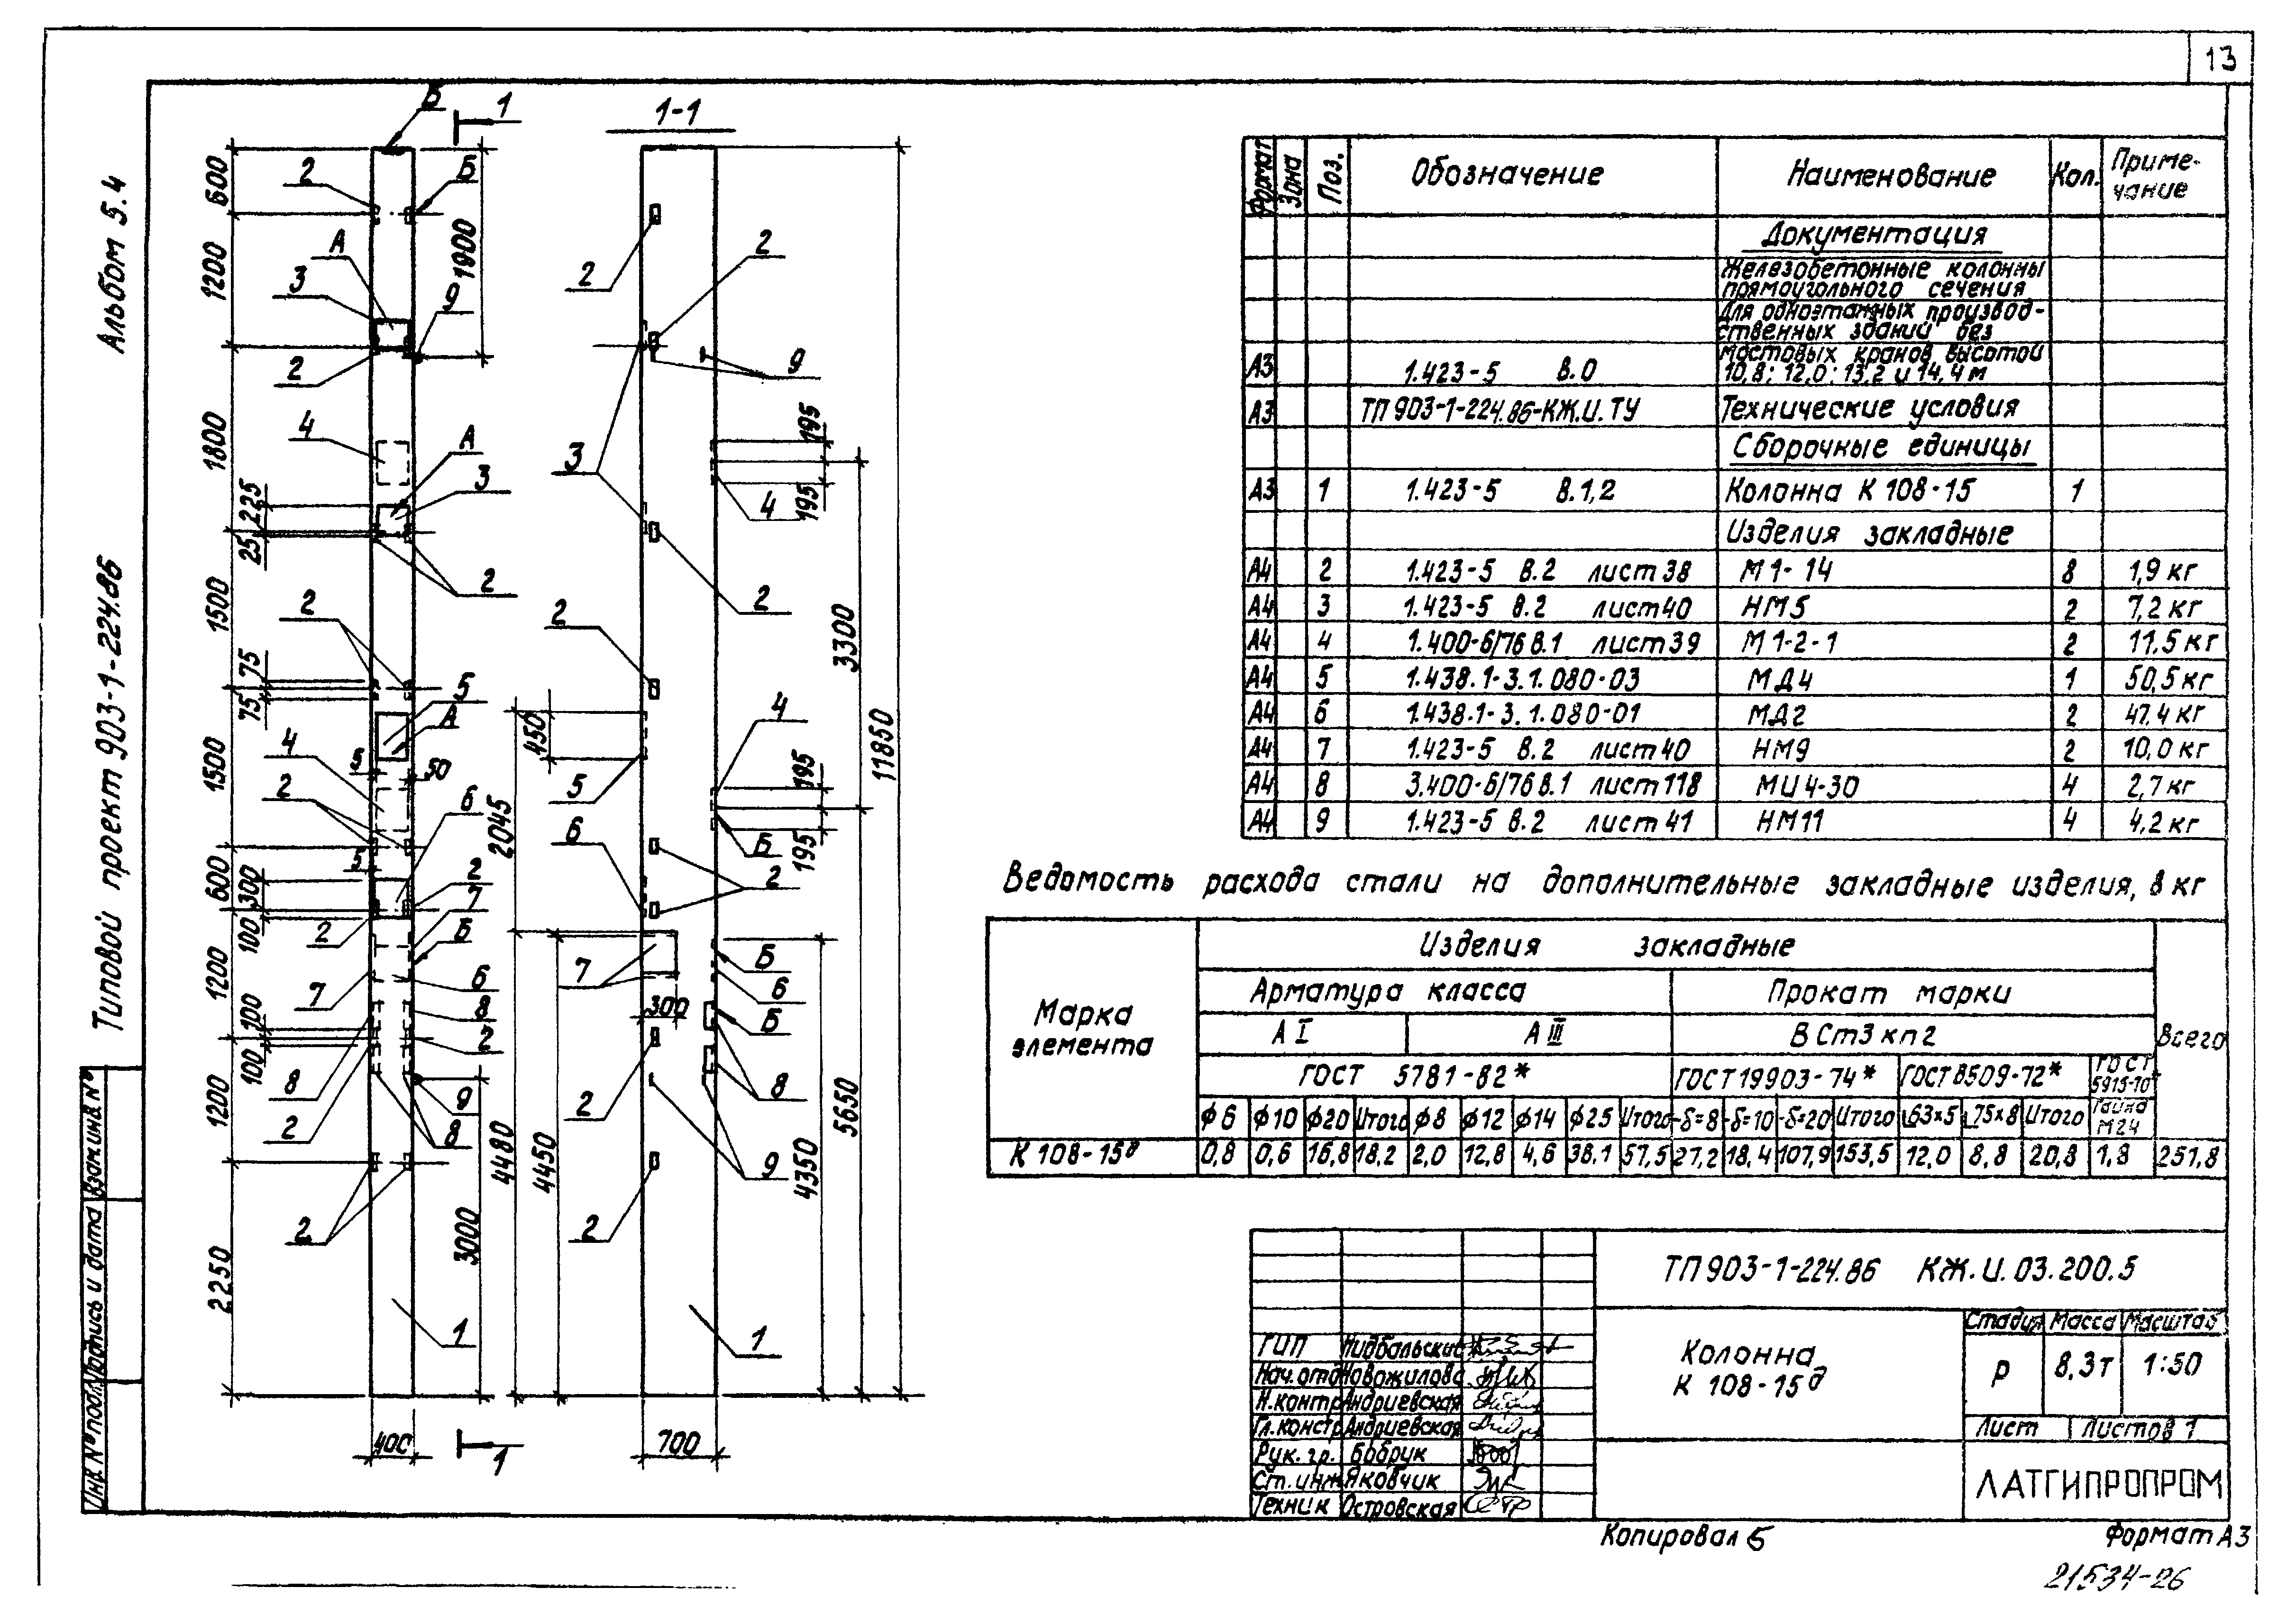 13
Альбом 5.4
Типовой проект 903-1-224.86
Инв. № подл.
Подпись и дата
Взам.инв. №
1-1
Б
1
600
1200
1800
225
25
1500
75
75
1500
600
300
100
1200
100
100
1200
2250
2
Б
А
1900
3
9
2
4
А
3
2
2
5
А
4
5
50
2
6
5
2
7
2
Б
7
6
8
2
8
9
2
8
2
3000
1
400
1
2
2
2
9
195
3
4
195
2
2
3300
11850
450
4
5
195
2045
6
Б
195
2
7
Б
6
300
Б
2
8
5650
4480
4450
9
4350
2
1
700
Формат
Зона
Поз.
Обозначение
Наименование
Кол.
Приме-
чание
Документация
Железобетонные колонны
прямоугольного сечения
для одноэтажных производ-
ственных зданий без
мостовых кранов, высотой
А3 1.423-5 В.0 10,8; 12,0; 13,2 и 14,4 м
А3 ТП 903-1-224.86-КЖ.И.ТУ Технические условия
Сборочные единицы
А3 1 1.423-5 В.1,2 Колонна К 108-15 1
Изделия закладные
А4 2 1.423-5 В.2 лист 38 М1-14 8 1,9 кг
А4 3 1.423-5 В.2 лист 40 НМ5 2 7,2 кг
А4 4 1.400-6/76 В.1 лист 39 М1-2-1 2 11,5 кг
А4 5 1.438.1-3.1.080-03 МД4 1 50,5 кг
А4 6 1.438.1-3.1.080-01 МД2 2 47,4 кг
А4 7 1.423-5 В.2 лист 40 НМ9 2 10,0 кг
А4 8 3.400-6/76 В.1 лист 118 МИ4-30 4 2,7 кг
А4 9 1.423-5 В.2 лист 41 НМ11 4 4,2 кг
Ведомость расхода стали на дополнительные закладные изделия, в кг
Марка
элемента
Изделия закладные
Всего
Арматура класса
Прокат марки
А I
А III
В Ст3 кп2
ГОСТ 5781-82*
ГОСТ 19903-74*
ГОСТ 8509-72*
ГОСТ
5915-70*
ф6 ф10 ф20 Итого ф8 ф12 ф14 ф25 Итого -δ=8 -δ=10 -δ=20 Итого ∟63×5 ∟75×8 Итого Гайка М24
К 108-15д 0,8 0,6 16,8 18,2 2,0 12,8 4,6 38,1 57,5 27,2 18,4 107,9 153,5 12,0 8,8 20,8 1,8 251,8
ТП 903-1-224.86 КЖ.И.03.200.5
Колонна
К 108-15д
Стадия Масса Масштаб
Р 8,3т 1:50
Лист Листов 1
ЛАТГИПРОПРОМ
ГИП Нидбальский
Нач.отд Новожилова
Н.контр Андриевская
Гл.констр Андриевская
Рук. гр. Бобрук
Ст. инж Яковчик
Техник Островская
Копировал
Формат А3
21534-26